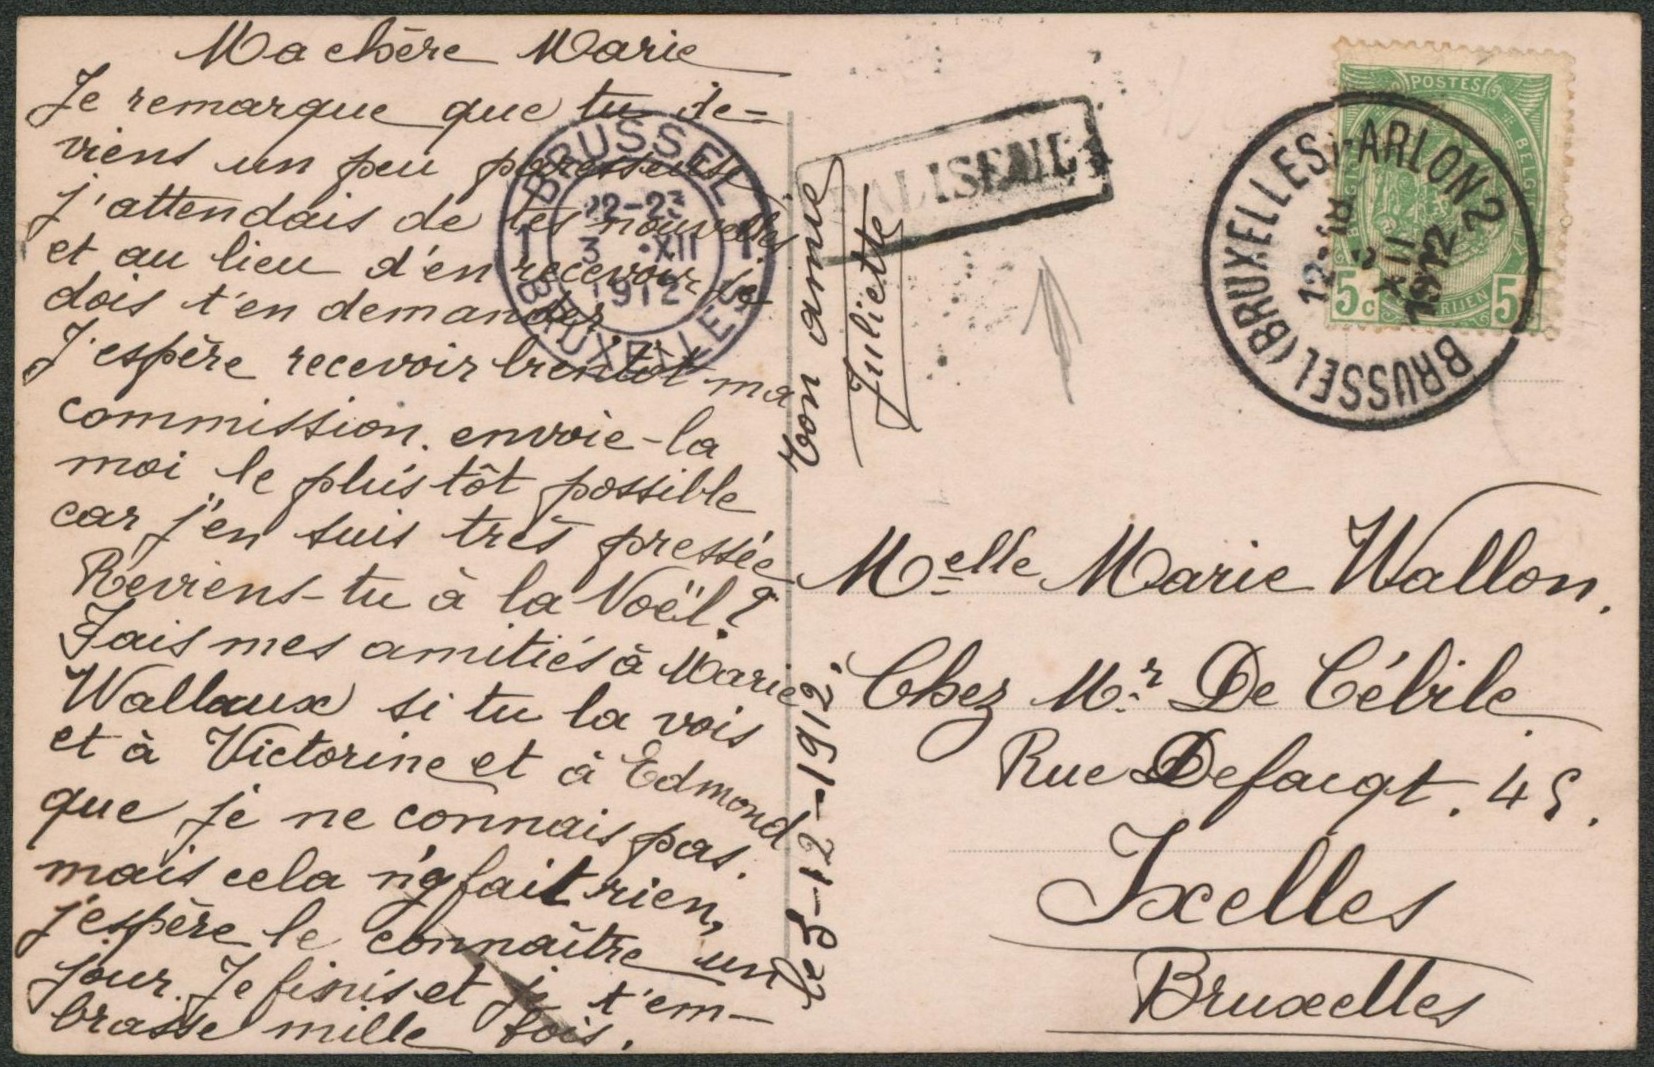 Ma chère Marie
Je remarque que tu de=
viens un peu paresseuse
j'attendais de tes nouvelles
et au lieu d'en recevoir je
dois t'en demander
J'espère recevoir bientôt ma
commission. envoie-la
moi le plus tôt possible
car j'en suis très pressée
Reviens-tu à la Noël?
Fais mes amitiés à Marie
Wallaux si tu la vois
et à Victorine et à Edmond
que je ne connais pas.
mais cela n'y fait rien,
j'espère le connaître un
jour. Je finis et je t'em-
brasse mille fois.
ton amie
Juliette
le 3-12-1912.
BRUSSEL
1 1
22-23
3 ·XII
1912
BRUXELLES
PALISEUL
POSTES
BELGIQUE BELGIE
5c 5c
BRUSSEL (BRUXELLES)-ARLON 2
12-18
3
XII
1912
Melle Marie Wallon.
Chez Mr De Cébile
Rue Defacqt. 45.
Ixelles
Bruxelles